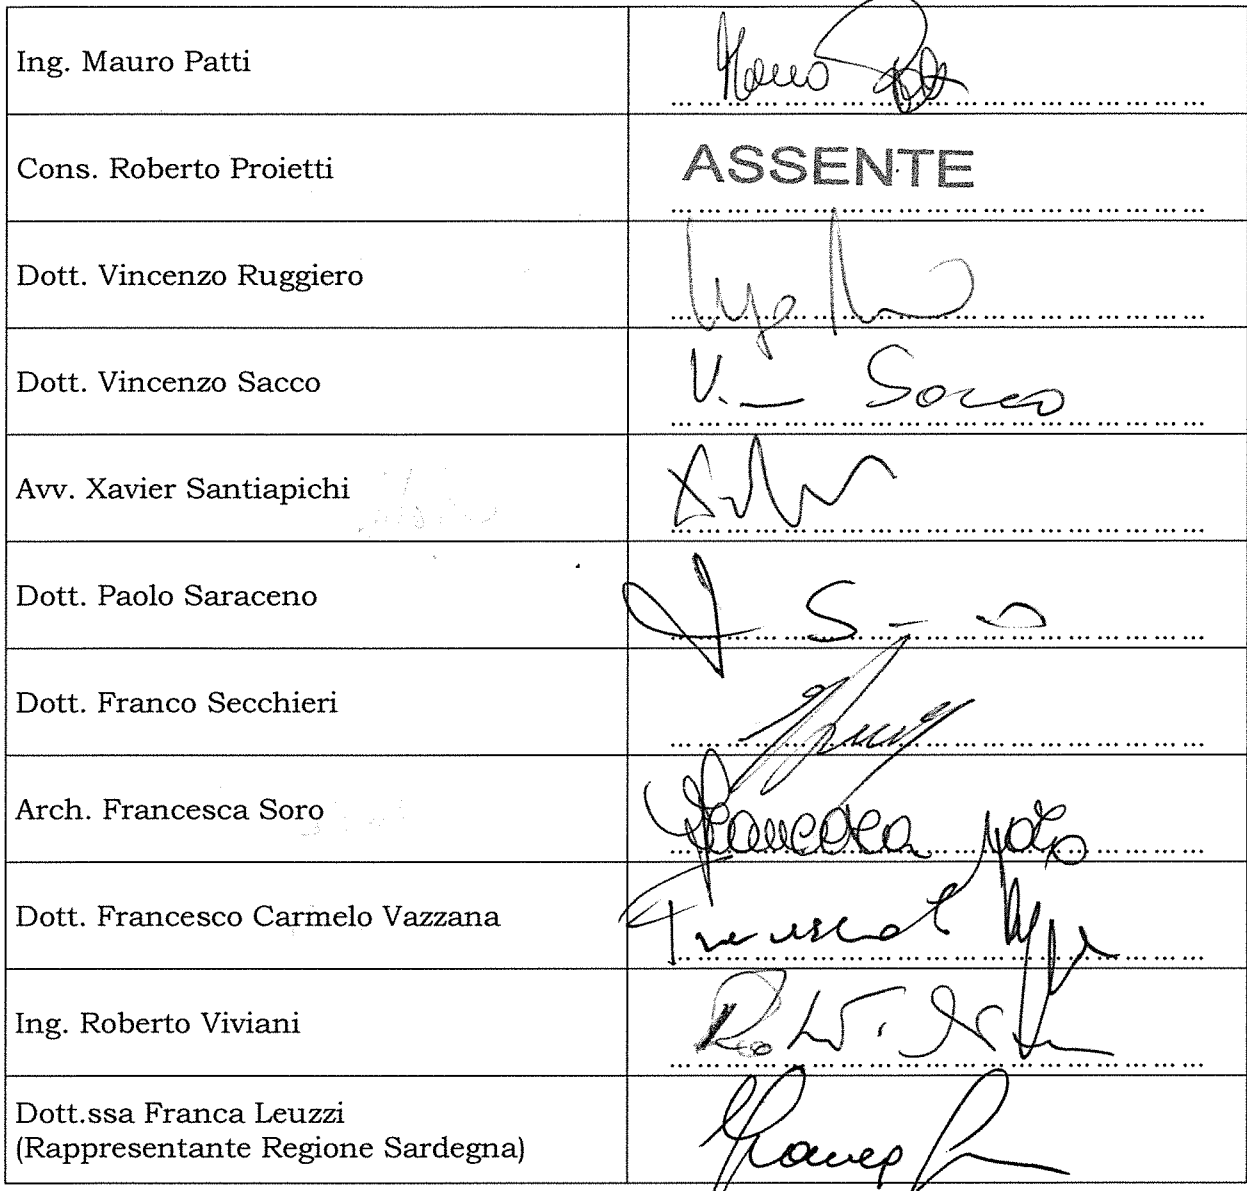 Ing. Mauro Patti
Mauro
Cons. Roberto Proietti
ASSENTE
Dott. Vincenzo Ruggiero
Dott. Vincenzo Sacco
V. Sacco
Avv. Xavier Santiapichi
Dott. Paolo Saraceno
Dott. Franco Secchieri
Arch. Francesca Soro
Francesca Soro
Dott. Francesco Carmelo Vazzana
Ing. Roberto Viviani
Dott.ssa Franca Leuzzi
(Rappresentante Regione Sardegna)